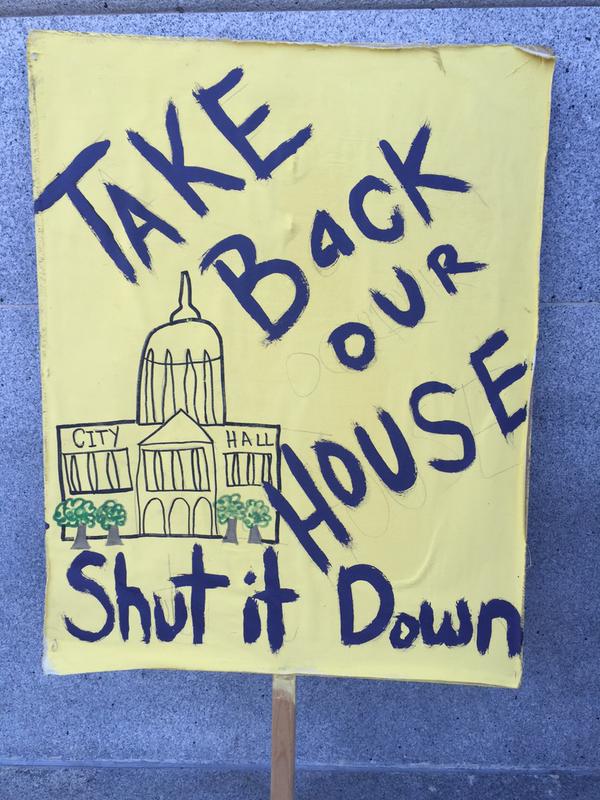 TAKE
BaCK
OUR
HOUSE
CITY HALL
Shut it Down